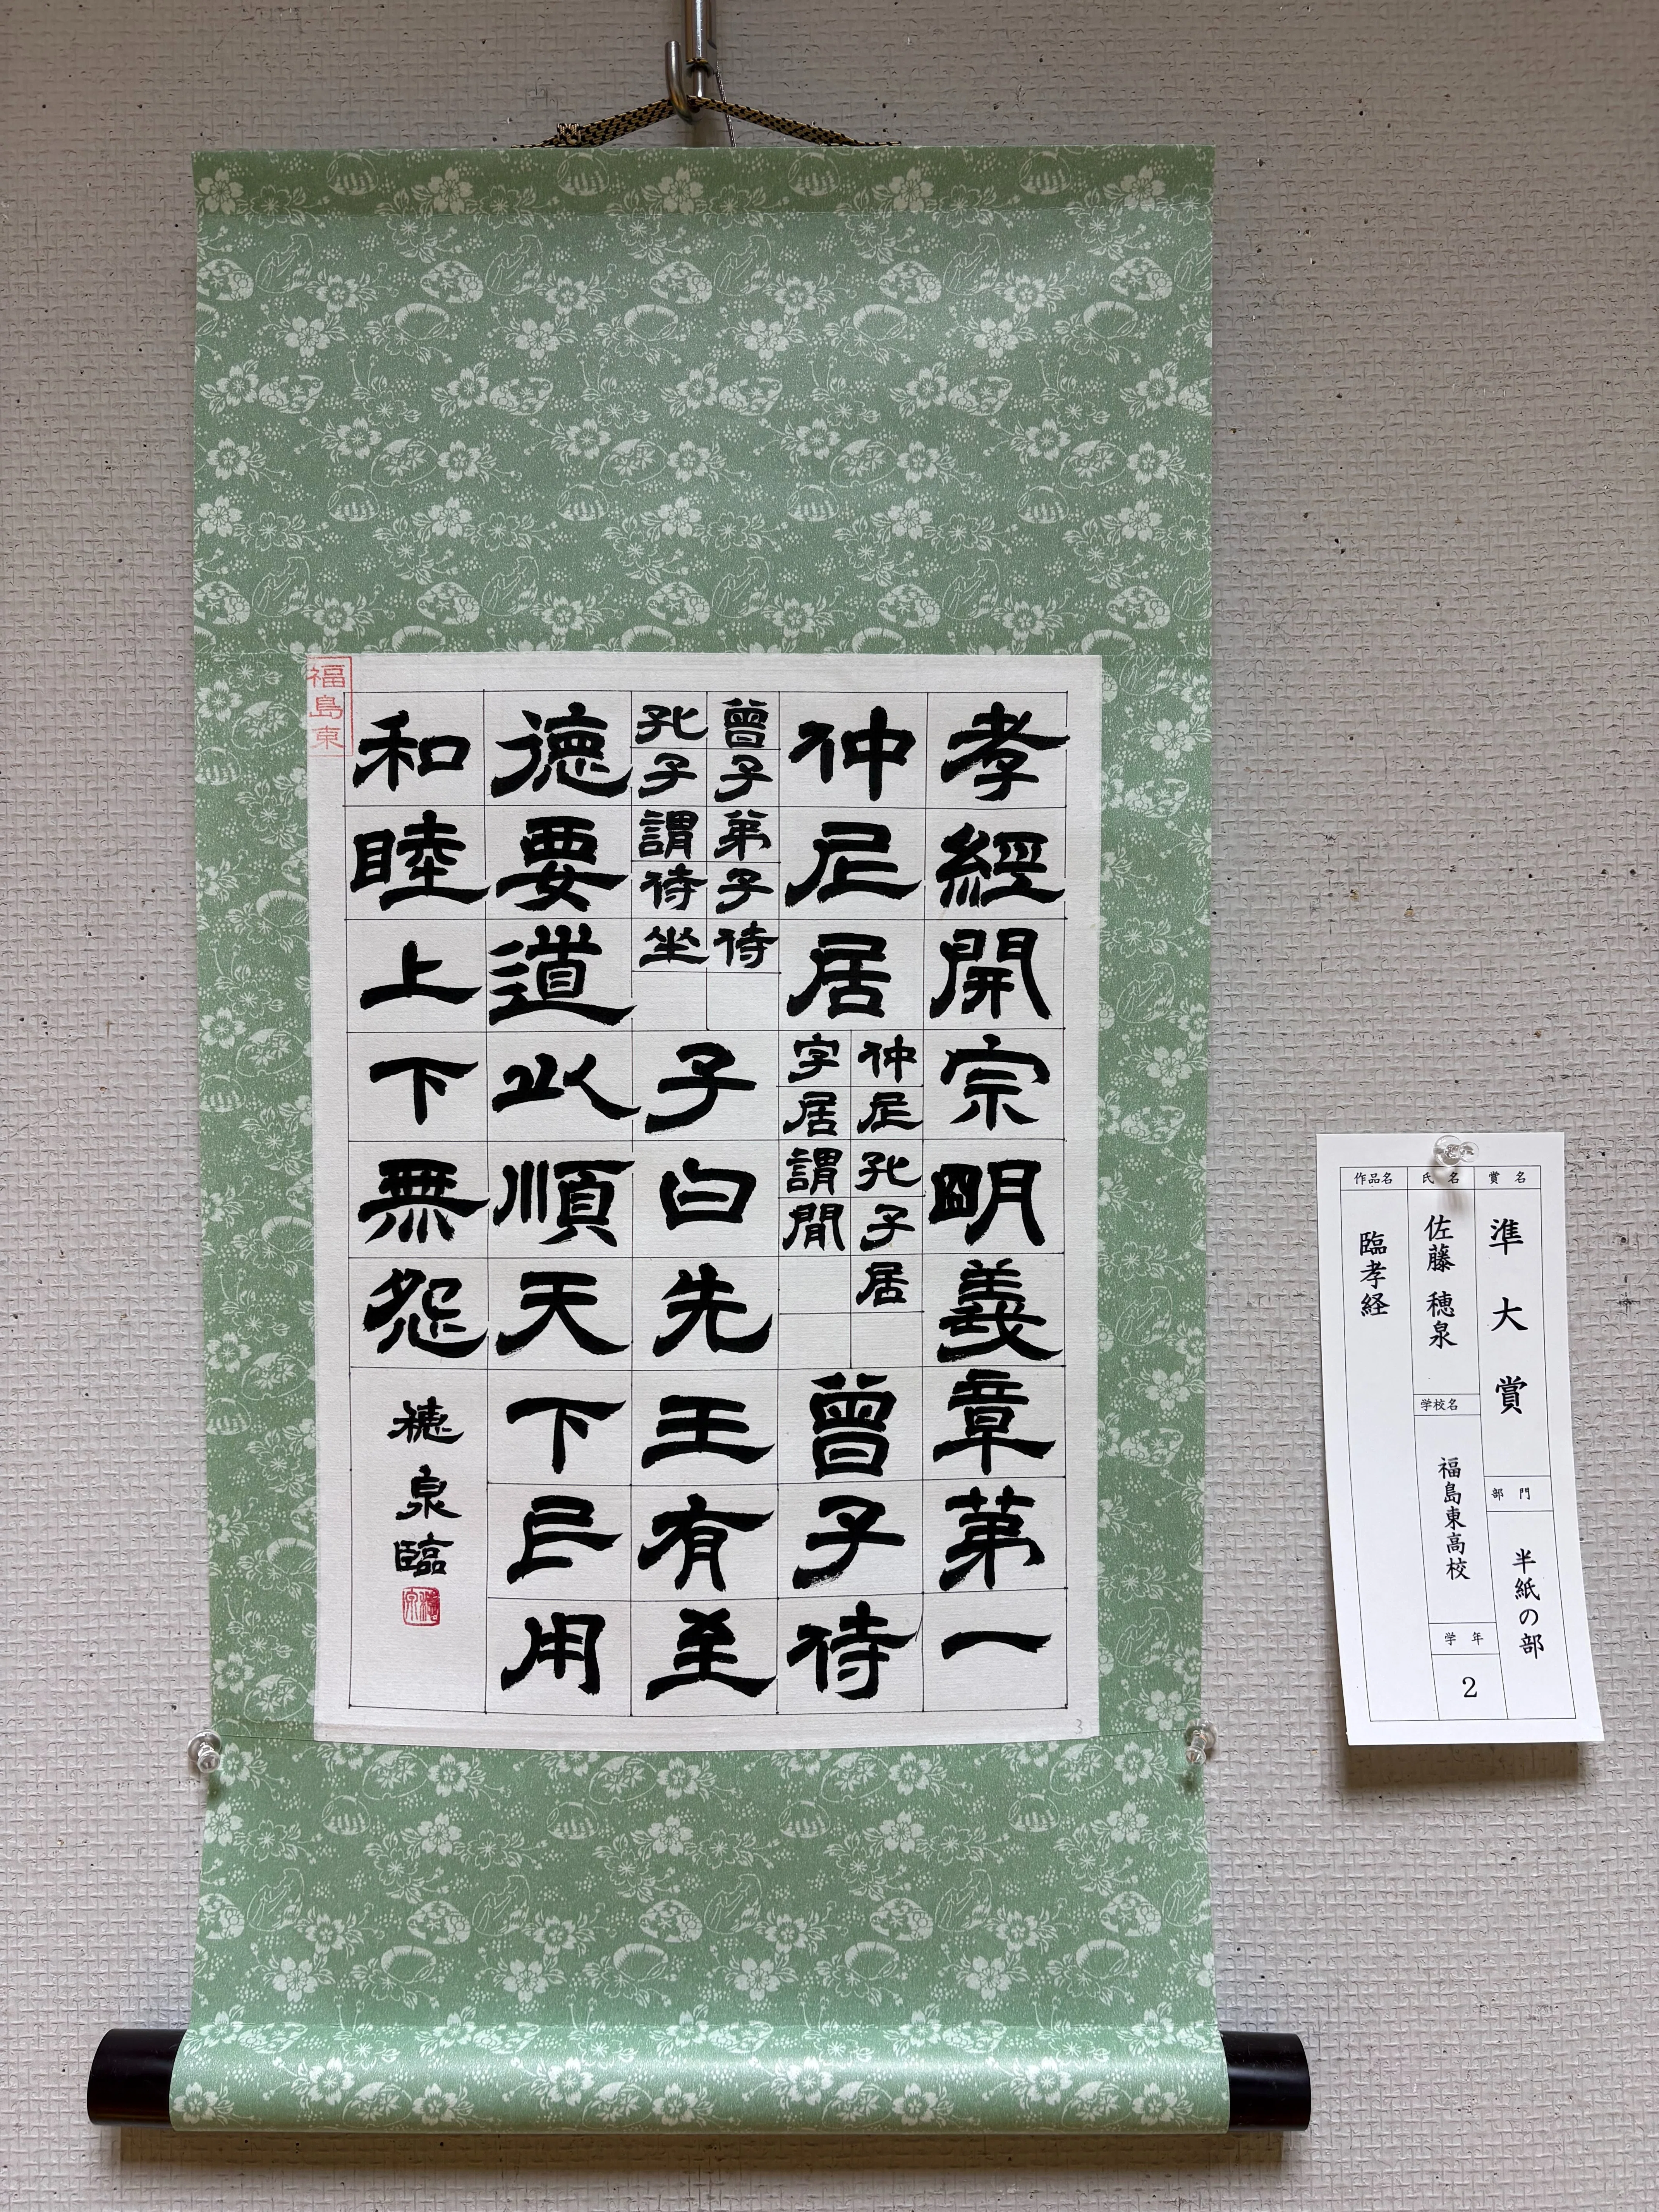 孝經開宗朙義章第一
仲尼居
仲尼孔子居
字居謂閒
曾子侍
曾子弟子侍
孔子謂侍坐
子曰先王有至
德要道以順天下民用
和睦上下無怨
穂泉臨
福島東
賞名
準大賞
部門
半紙の部
氏名
佐藤 穂泉
学校名
福島東高校
学年
2
作品名
臨孝経
3